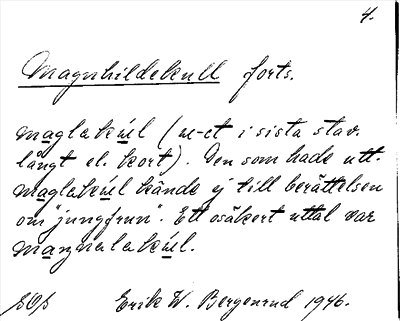 4.
Magnhildekull forts.
maglakúl (u-et i sista stav.
långt el. kort). Den som hade utt.
maglakúl kände ej till berättelsen
om "jungfrun". Ett osäkert uttal var
magnalakúl.
Erik W. Bergenrud 1946.